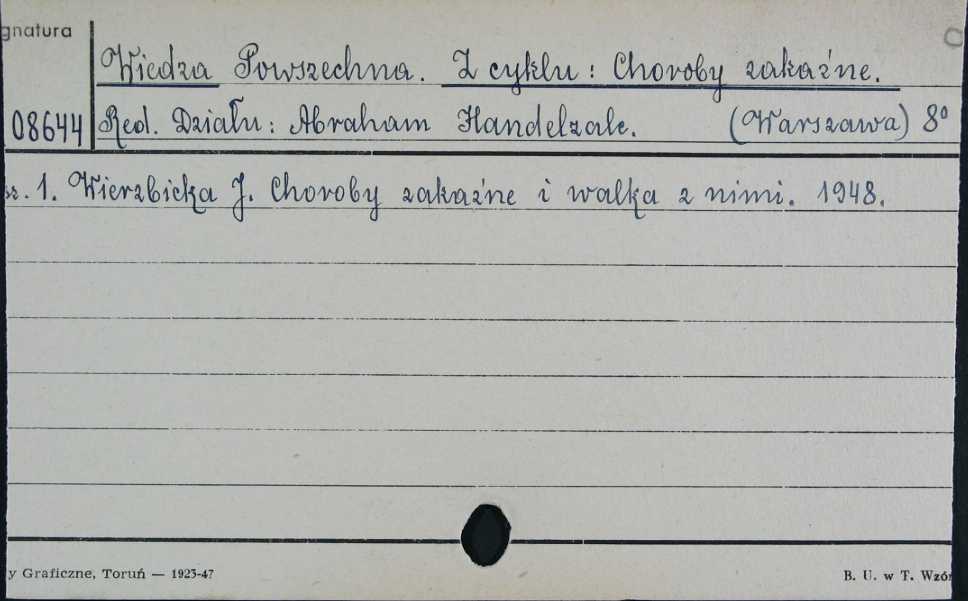 gnatura
Wiedza Powszechna. Z cyklu: Choroby zakaźne.
08644 Red. Działu: Abraham Handelzalc. (Warszawa) 8°
sz. 1. Wierzbicka J. Choroby zakaźne i walka z nimi. 1948.
y Graficzne, Toruń — 1923-47
B. U. w T. Wzór